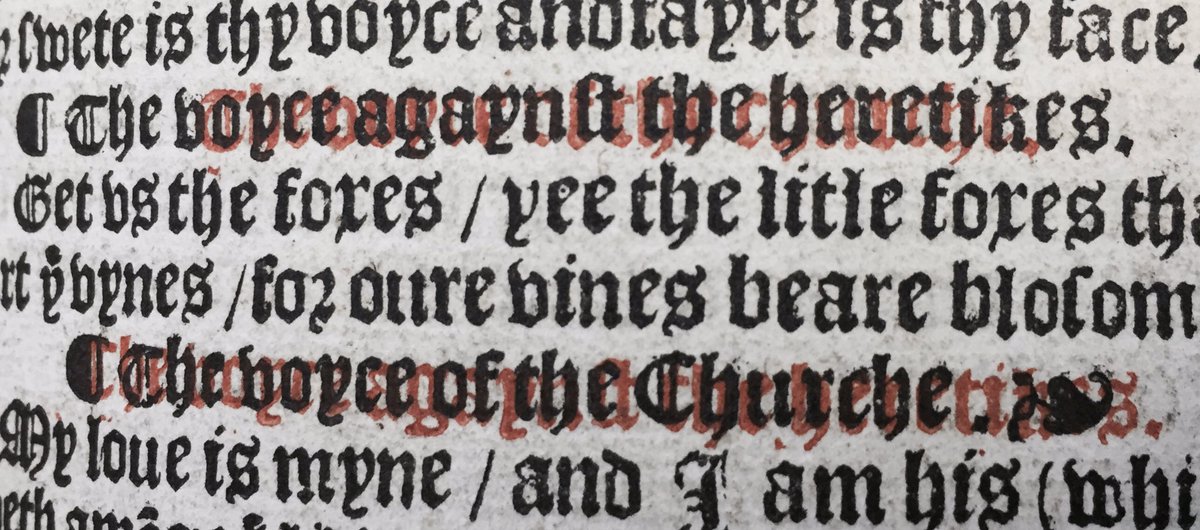 ſwete is thy voyce and fayre is thy face.
¶ The voyce agaynſt the heretikes.
Get vs the foxes / yee the litle foxes the
rt yͤ vynes / foꝛ oure vines beare bloſom
¶ The voyce of the Churche. ❧
My loue is myne / and I am his (whi